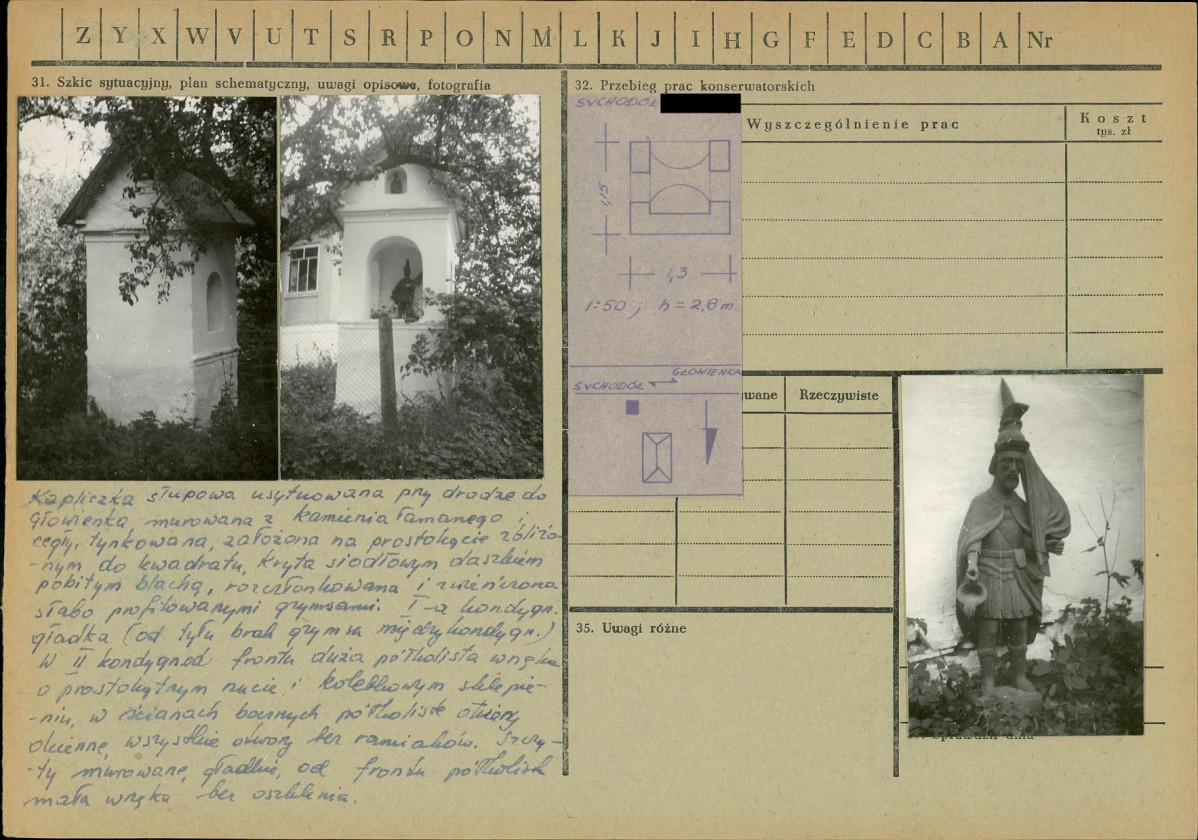 Z Y X W V U T S R P O N M L K J I H G F E D C B A Nr
31. Szkic sytuacyjny, plan schematyczny, uwagi opisowe, fotografia
Kapliczka słupowa usytuowana przy drodze do
Głowienka, murowana z kamienia łamanego i
cegły, tynkowana, założona na prostokącie zbliżo-
-nym do kwadratu, kryta siodłowym daszkiem
pobitym blachą, rozczłonkowana i zwieńczona
słabo profilowanymi gzymsami. I-a kondygn.
gładka (od tyłu brak gzymsu międzykondygn.)
W II kondygn. od frontu duża półkolista wnęka
o prostokątnym rzucie i kolebkowym sklepie-
-niu, w ścianach bocznych półkoliste otwory
okienne, wszystkie otwory bez ramiaków. Szczy-
-ty murowane, gładkie, od frontu półkolista
mała wnęka bez oszklenia.
32. Przebieg prac konserwatorskich
SUCHODÓŁ
Wyszczególnienie prac
Koszt
tys. zł
1,15
1,3
1:50; h = 2,8 m.
GŁOWIENKA
SUCHODÓŁ
wane
Rzeczywiste
35. Uwagi różne